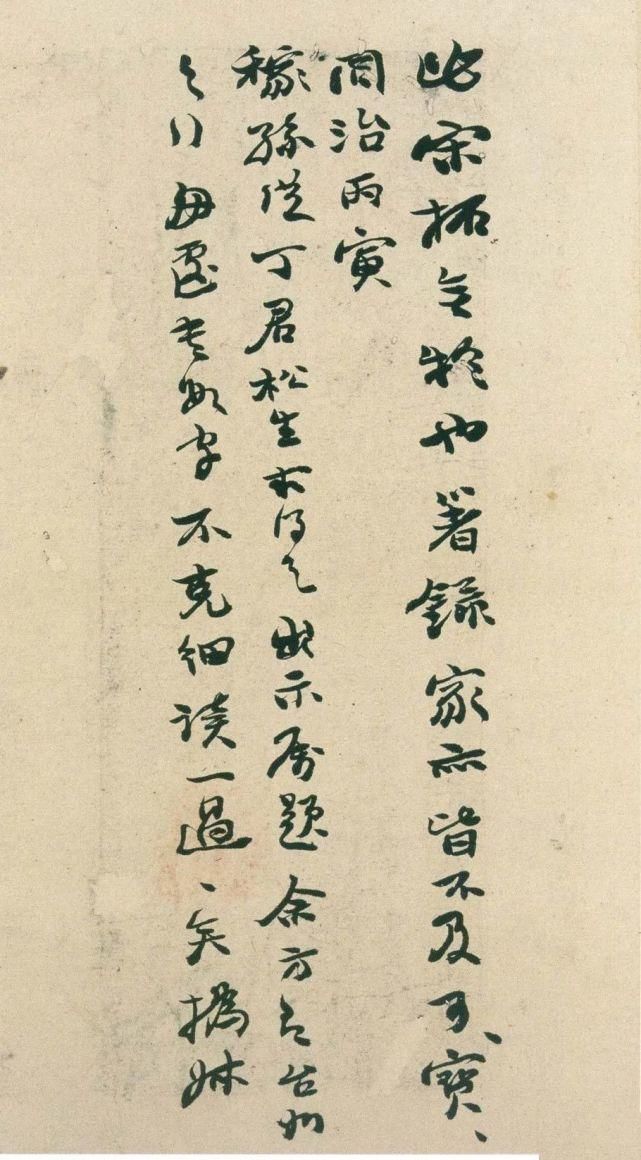 此宋拓也著錄家亦皆不及可、寶、
同治丙寅
稼孫從丁君松生求得之出示屬題余方有台州
之行匆遽書數字不克細讀一過、矣撝叔